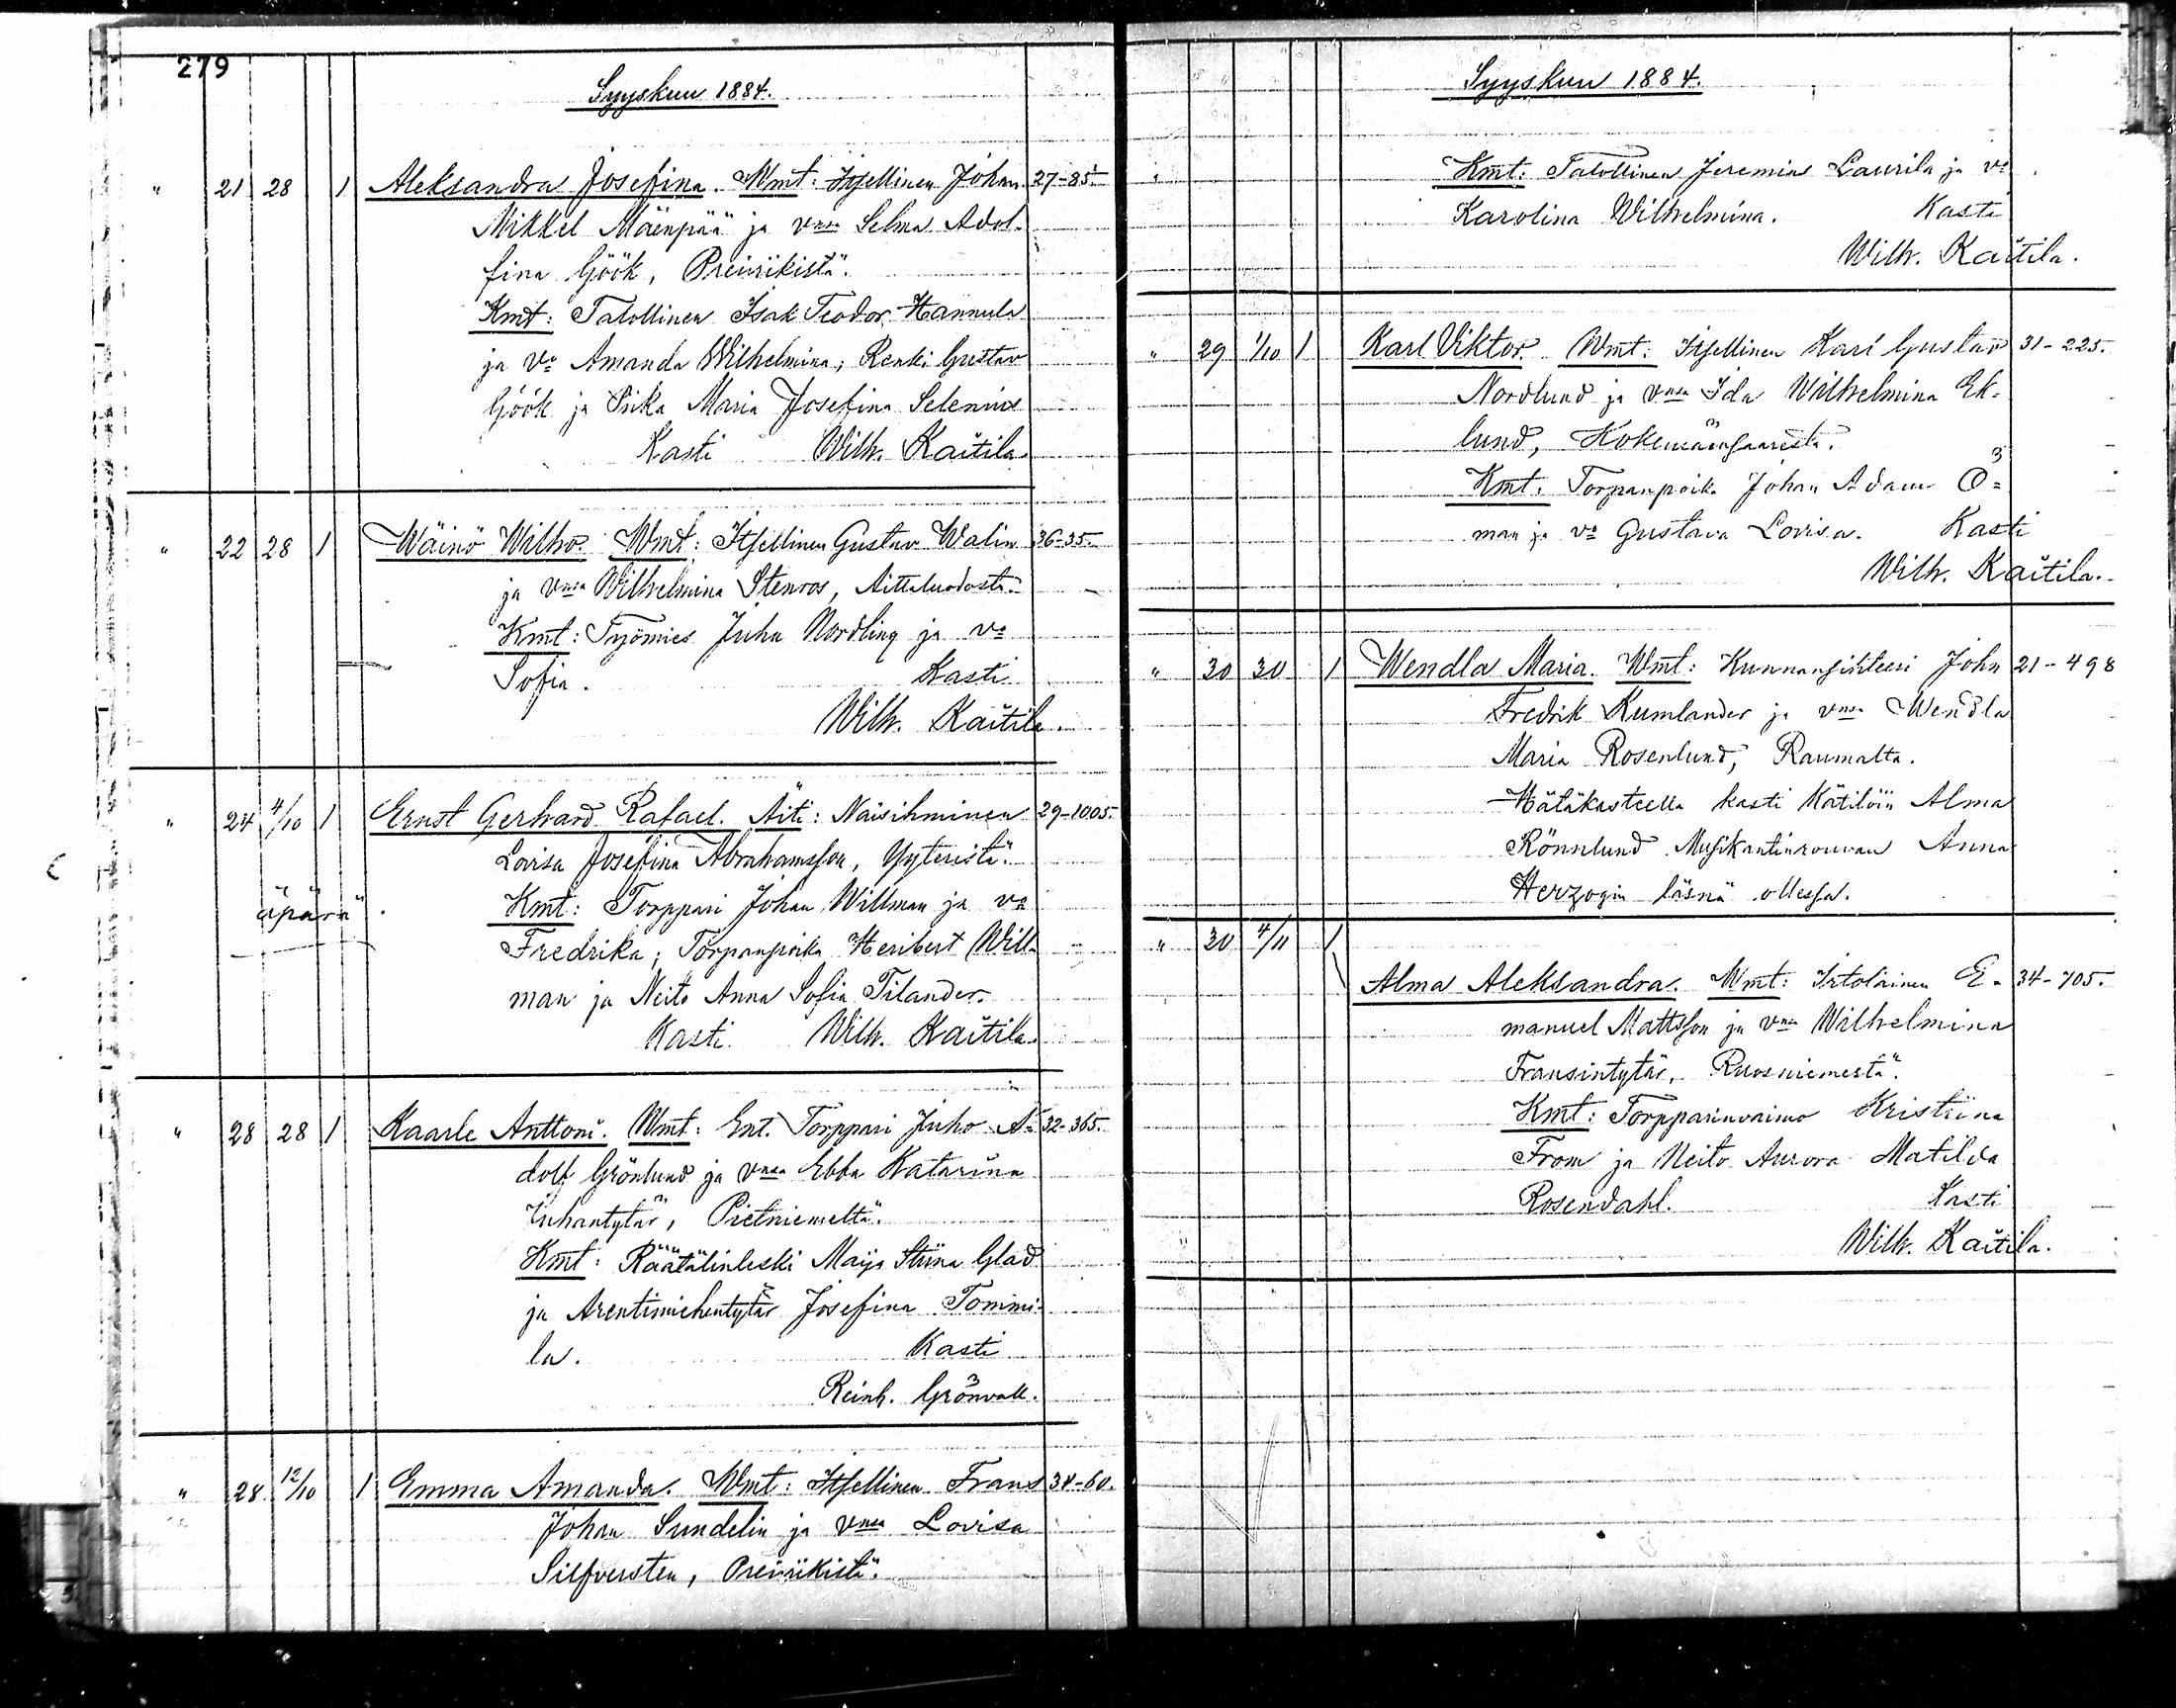 279
Syyskuu 1884.
" 21 28 1 Aleksandra Josefina. Wmt: Itsellinen Johan 27-85.
Mikkel Mäenpää ja vmsa Selma Adol-
fina Göök, Preiviikistä.
Kmt: Talollinen Isak Teodor Hannula
ja vo Amanda Wilhelmina; Renki Gustav
Göök ja Piika Maria Josefina Selenius
Kasti Wilh. Kaitila
" 22 28 1 Wäinö Wilho. Wmt: Itsellinen Gustav Walin 36-35.
ja vmsa Wilhelmina Stenros, Aittaluodosta.
Kmt: Työmies Juha Nordling ja vo
Sofia. Kasti
Wilh. Kaitila.
" 24 4/10 1 Ernst Gerhard Rafael. Äiti: Naisihminen 29-1005.
Lovisa Josefina Abrahamsson, Yyteristä.
äpärä Kmt: Torppari Johan Willman ja vo
Fredrika; Torpanpoika Heribert Will-
man ja Neito Anna Sofia Tilander.
Kasti. Wilh. Kaitila.
" 28 28 1 Kaarle Anttoni. Wmt: Ent. Torppari Juho A- 32-365.
dolf Grönlund ja vmsa Ebba Katariina
Juhantytär, Pietniemeltä.
Kmt: Räätälinleski Maija Stiina Glad
ja Arentimiehentytär Josefina Tommi-
la. Kasti
Reinh. Grönvall.
" 28 12/10 1 Emma Amanda. Wmt: Itsellinen Frans 34-60.
Johan Sundelin ja vmsa Lovisa
Silfversten, Preiviikistä.
Syyskuu 1884.
Kmt: Talollinen Jeremias Laurila ja vo
Karolina Wilhelmina. Kasti
Wilh. Kaitila.
" 29 1/10 1 Karl Viktor. Wmt: Itsellinen Karl Gustav 31-225.
Nordlund ja vmsa Ida Wilhelmina Ek-
lund, Kokemäensaaresta.
Kmt: Torpanpoika Johan Adam Ö=
man ja vo Gustava Lovisa. Kasti
Wilh. Kaitila.
" 30 30 1 Wendla Maria. Wmt: Kunnansihteeri John 21-498
Fredrik Kumlander ja vmsa Wendla
Maria Rosenlund, Raumalta.
Hätäkasteella kasti Kätilöin Alma
Rönnlund Musikantinrouvan Anna
Herzogin läsnä ollessa.
" 30 4/11 1
Alma Aleksandra. Wmt: Irtolainen E- 34-705.
manuel Mattsson ja vmsa Wilhelmina
Fransintytär, Ruosniemestä.
Kmt: Torpparinvaimo Kristiina
From ja Neito Aurora Matilda
Rosendahl. Kasti
Wilh. Kaitila.